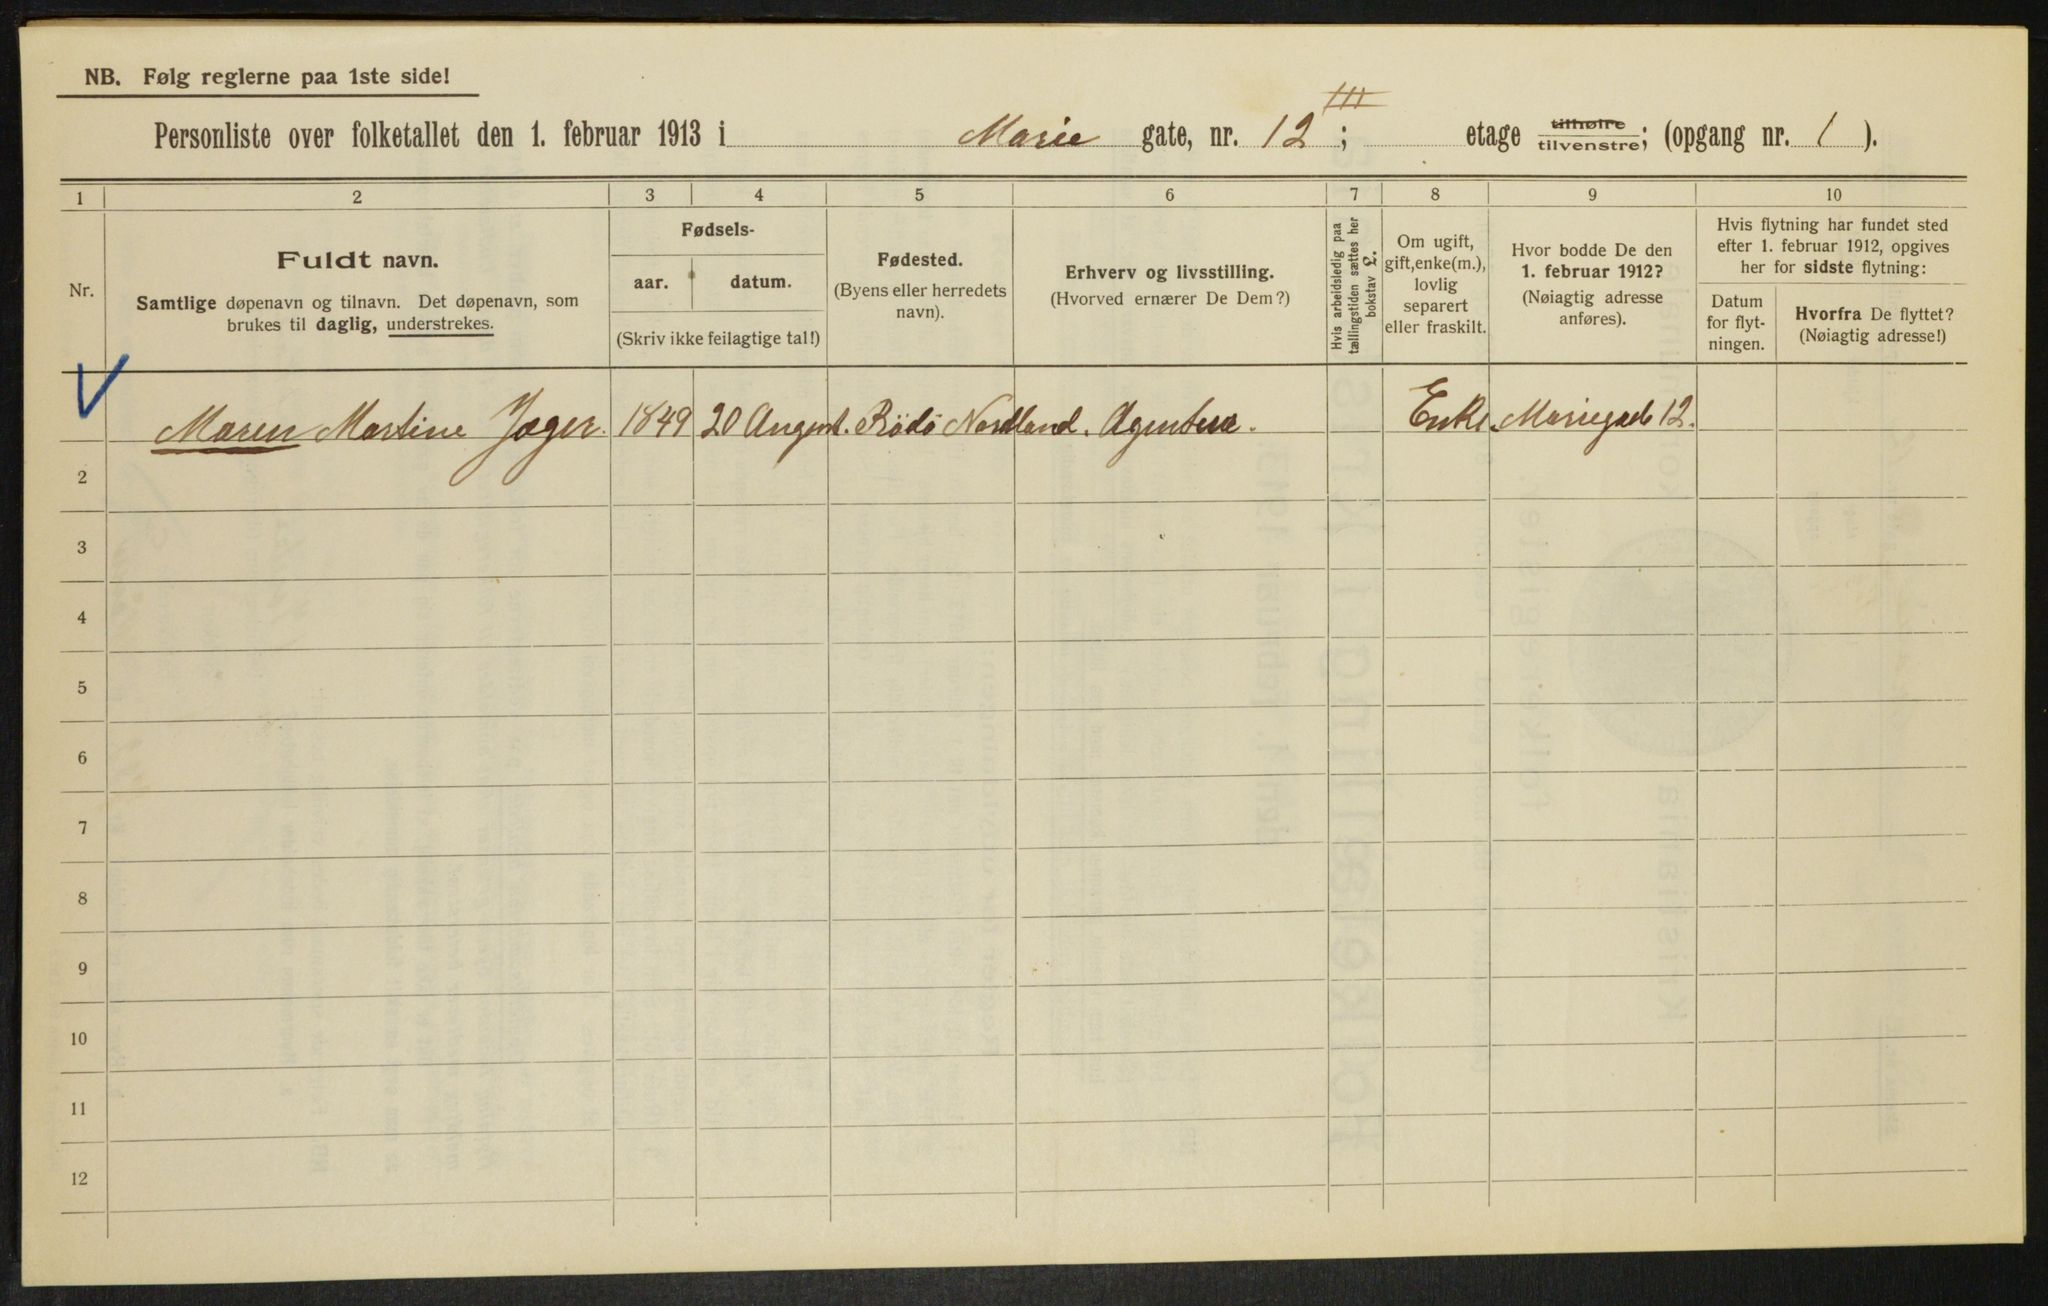 NB. Følg reglerne paa 1ste side!
III
Personliste over folketallet den 1. februar 1913 i Marie gate, nr. 12 ; etage tilhøire tilvenstre; (opgang nr. 1 ).
1 2 3 4 5 6 7 8 9 10
Nr.
Fuldt navn.
Samtlige døpenavn og tilnavn. Det døpenavn, som
brukes til daglig, understrekes.
Fødsels-
aar. datum.
(Skriv ikke feilagtige tal!)
Fødested.
(Byens eller herredets
navn).
Erhverv og livsstilling.
(Hvorved ernærer De Dem?)
Hvis arbeidsledig paa
tællingstiden sættes her
bokstav L.
Om ugift,
gift, enke(m.),
lovlig
separert
eller fraskilt.
Hvor bodde De den
1. februar 1912?
(Nøiagtig adresse
anføres).
Hvis flytning har fundet sted
efter 1. februar 1912, opgives
her for sidste flytning:
Datum
for flyt-
ningen.
Hvorfra De flyttet?
(Nøiagtig adresse!)
Maren Martine Jæger. 1849 20 August. Rödö Nordland. Agentur. Enke. Mariegade 12.
2
3
4
5
6
7
8
9
10
11
12